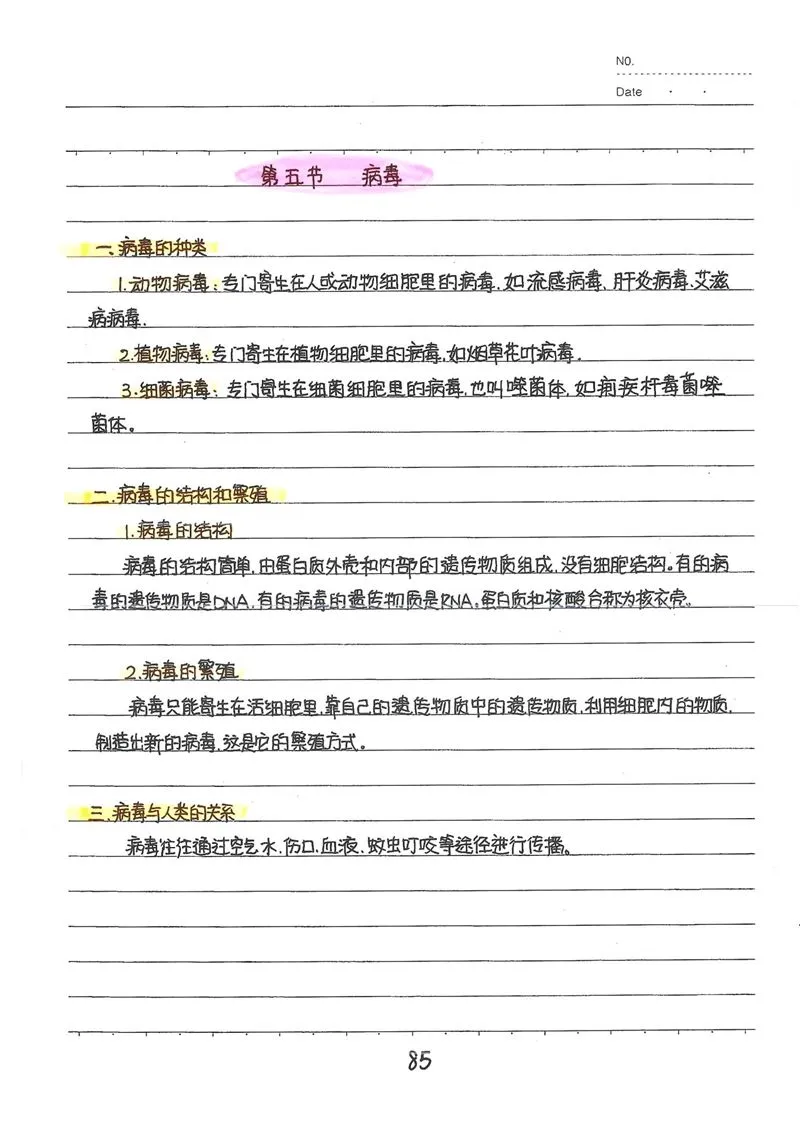 NO.
Date
第五节 病毒
一、病毒的种类
1.动物病毒:专门寄生在人或动物细胞里的病毒,如流感病毒、肝炎病毒、艾滋
病病毒.
2.植物病毒:专门寄生在植物细胞里的病毒,如烟草花叶病毒.
3.细菌病毒:专门寄生在细菌细胞里的病毒,也叫噬菌体,如痢疾杆毒菌噬
菌体。
二.病毒的结构和繁殖
1.病毒的结构
病毒的结构简单,由蛋白质外壳和内部的遗传物质组成,没有细胞结构。有的病
毒的遗传物质是DNA,有的病毒的遗传物质是RNA。蛋白质和核酸合称为核衣壳。
2.病毒的繁殖
病毒只能寄生在活细胞里,靠自己的遗传物质中的遗传物质,利用细胞内的物质,
制造出新的病毒,这是它的繁殖方式。
三.病毒与人类的关系
病毒往往通过空气水,伤口,血液、蚊虫叮咬等途径进行传播。
85